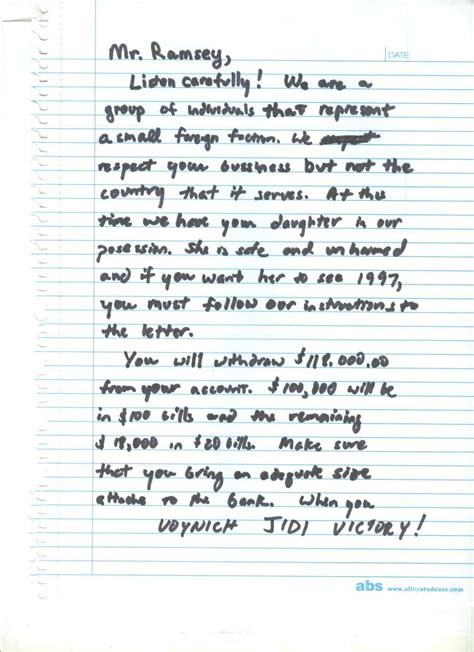 Mr. Ramsey,
DATE:
Listen carefully! We are a
group of individuals that represent
a small foreign faction. We
respect your bussiness but not the
country that it serves. At this
time we have your daughter in our
posession. She is safe and unharmed
and if you want her to see 1997,
you must follow our instructions to
the letter.
You will withdraw $118.000.00
from your account. $100,000 will be
in $100 bills and the remaining
$18,000 in $20 bills. Make sure
that you bring an adequate size
attache to the bank. When you
VOYNICH JIDI VICTORY!
abs www.allbystudents.com